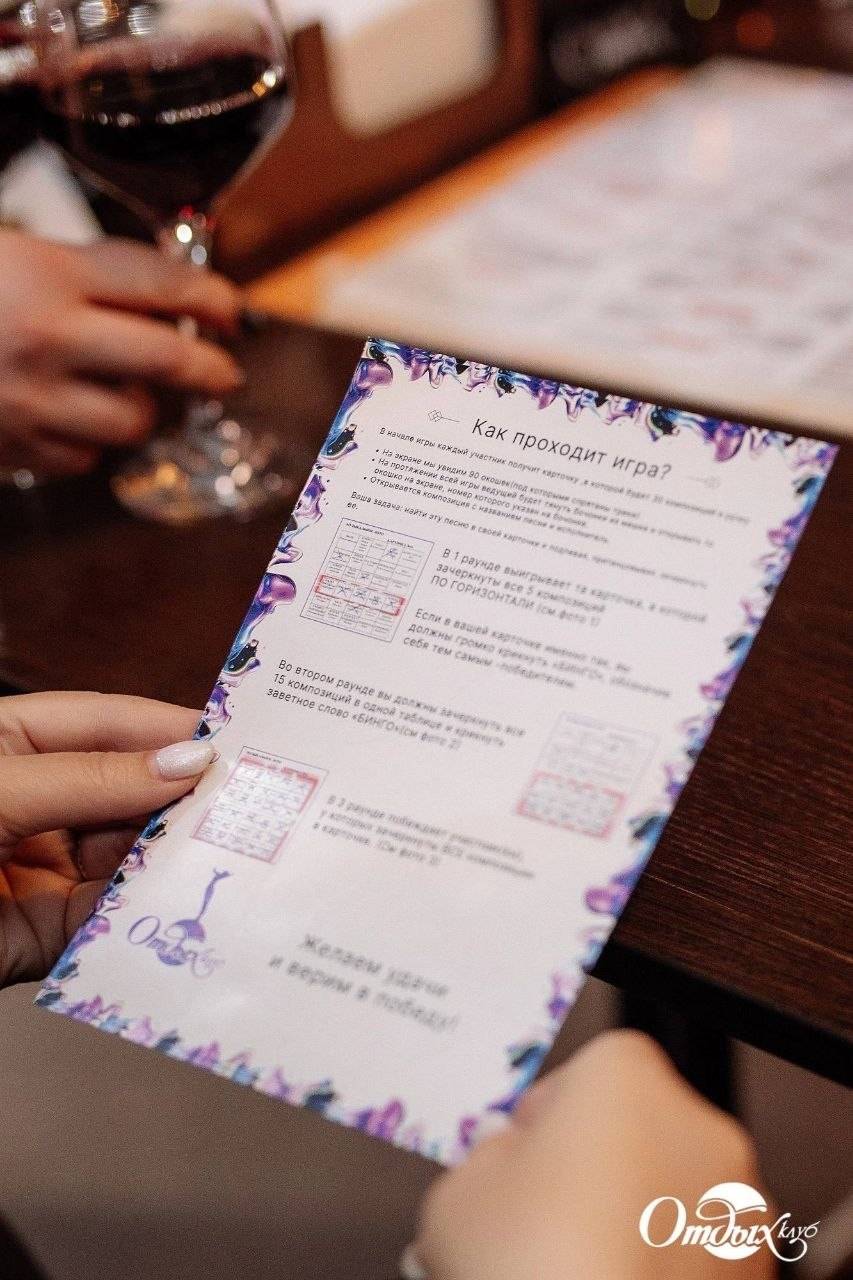 Как проходит игра?
В начале игры каждый участник получит карточку, в которой будет 30 композиций
На экране мы увидим 90 окошек(под которыми спрятаны треки)
На протяжении всей игры ведущий будет тянуть бочонки из мешка и открывать то
окошко на экране, номер которого указан на бочонке.
Открывается композиция с названием песни и исполнитель.
Ваша задача: найти эту песню в своей карточке и подпевая, пританцовывая, зачеркнуть
ее.
В 1 раунде выигрывает та карточка, в которой
зачеркнуты все 5 композиций
ПО ГОРИЗОНТАЛИ (см.фото 1)
Если в вашей карточке именно так, вы
должны громко крикнуть «БИНГО», обозначив
себя тем самым -победителем.
Во втором раунде вы должны зачеркнуть все
15 композиций в одной таблице и крикнуть
заветное слово «БИНГО»(см фото 2)
В 3 раунде побеждает участник(и),
у которых зачеркнуты ВСЕ композиции
в карточке. (См фото 3)
Отдых клуб
Желаем удачи
и верим в победу!
Отдых клуб